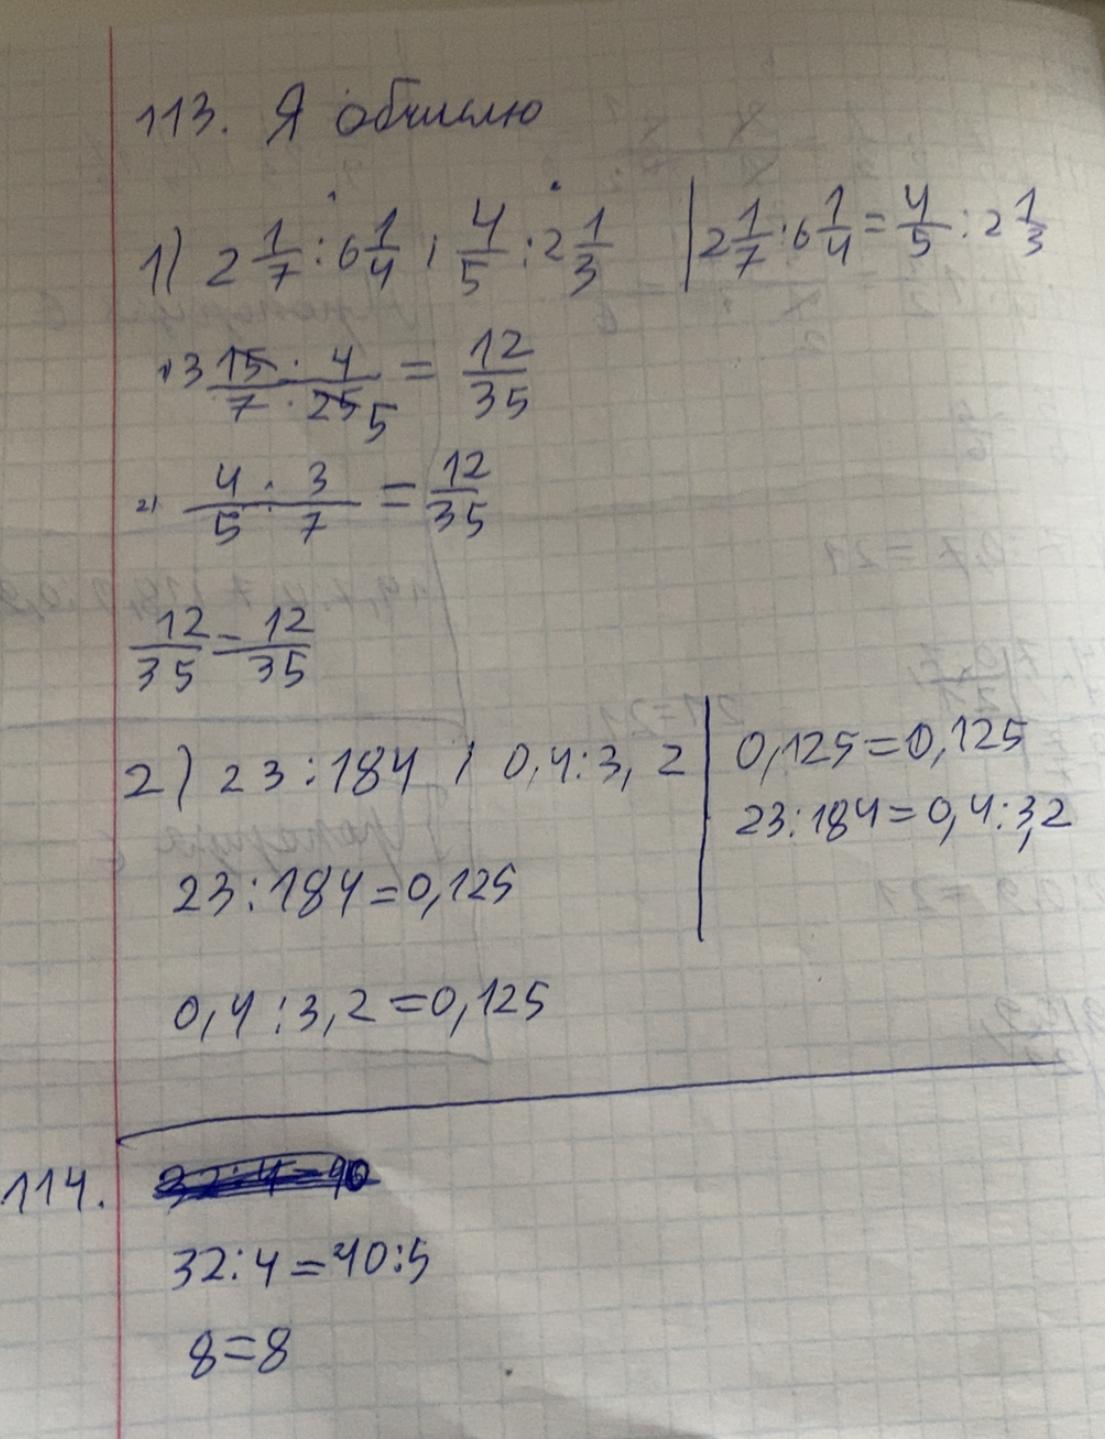 113. Я обчислю
1) 2 1/7 : 6 1/4 ; 4/5 : 2 1/3 | 2 1/7 : 6 1/4 = 4/5 : 2 1/3
1) 3 15 · 4 / 7 · 25 5 = 12/35
2) 4 · 3 / 5 · 7 = 12/35
12/35 = 12/35
2) 23 : 184 ; 0,4 : 3,2 | 0,125 = 0,125
23 : 184 = 0,4 : 3,2
23 : 184 = 0,125
0,4 : 3,2 = 0,125
114. 32 : 4 = 40
32 : 4 = 40 : 5
8 = 8